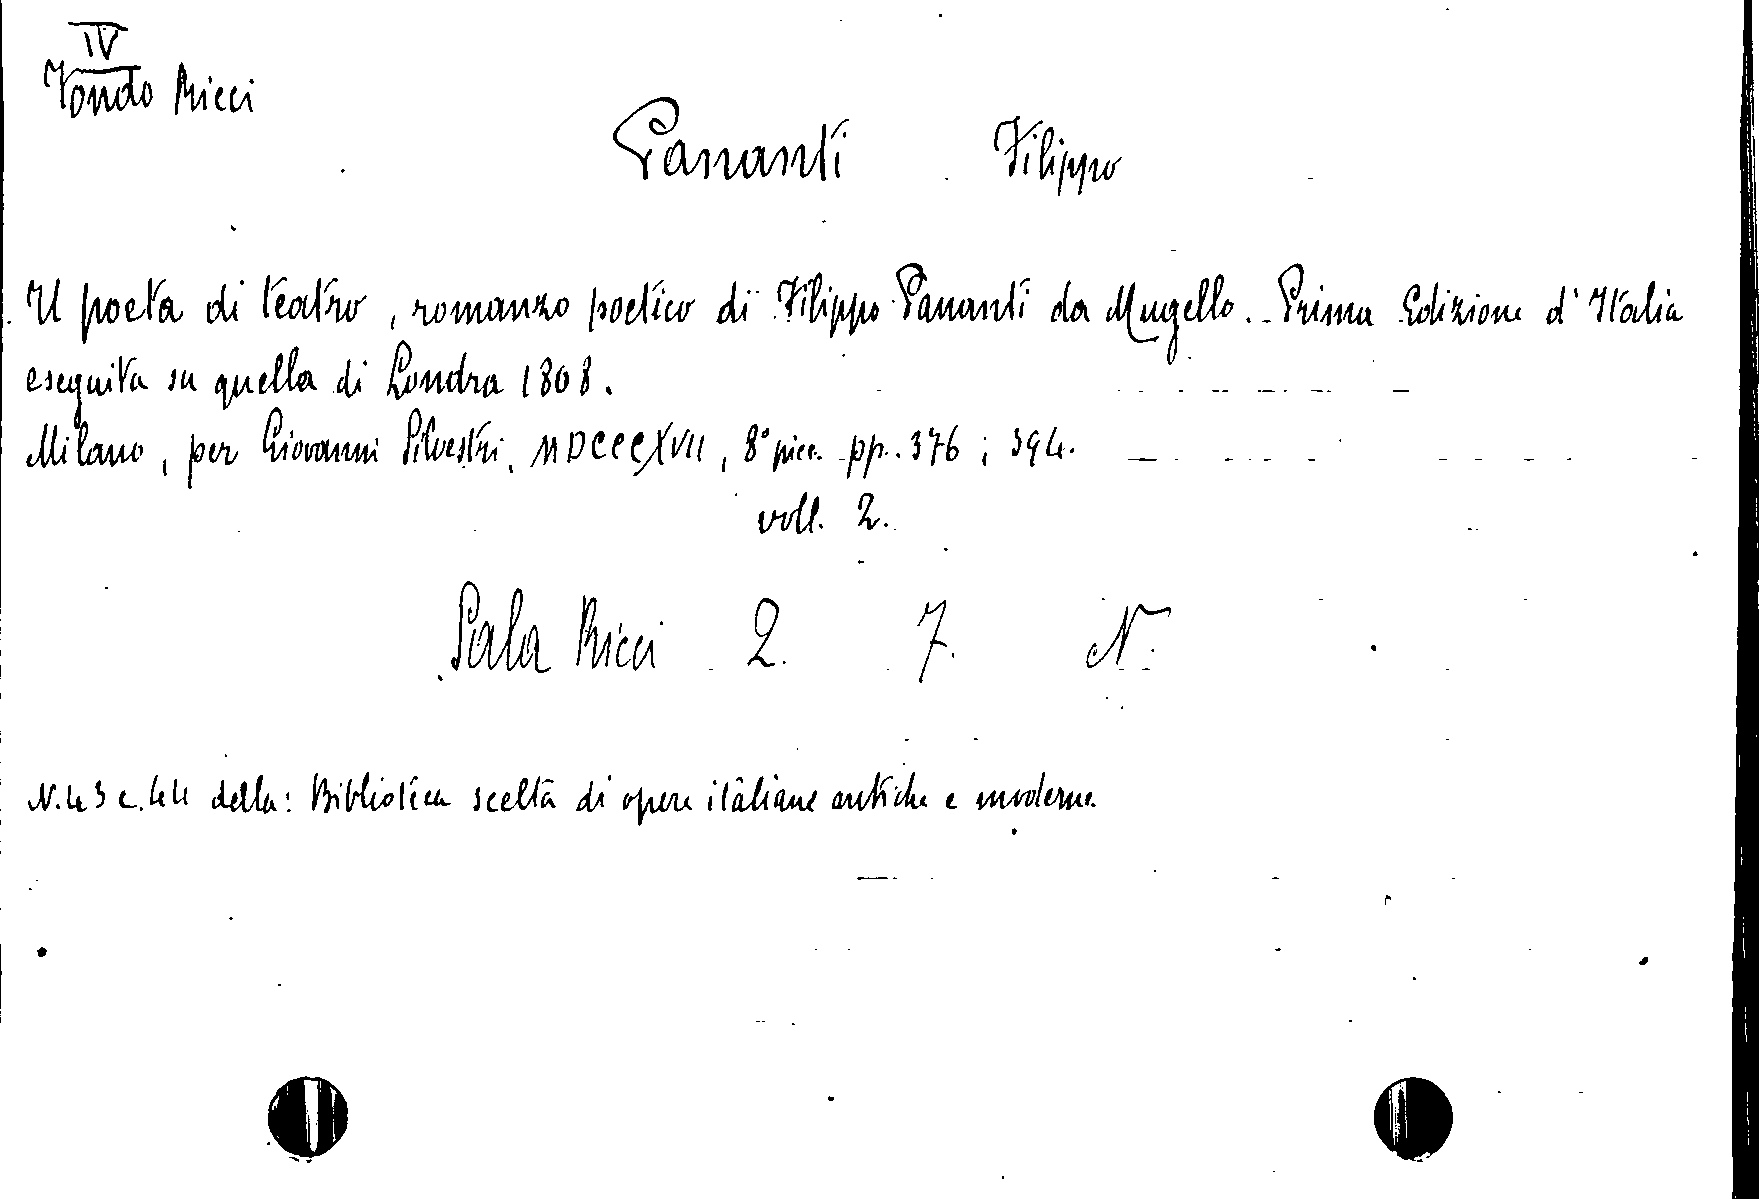 IV
Fondo Ricci
Pananti Filippo
Il poeta di teatro, romanzo poetico di Filippo Pananti da Mugello. Prima Edizione d'Italia
eseguita su quella di Londra 1808.
Milano, per Giovanni Silvestri, MDCCCXVII, 8° picc. pp. 376; 394.
voll. 2.
Sala Ricci 2. 7. N.
N. 43 e 44 della: Biblioteca scelta di opere italiane antiche e moderne